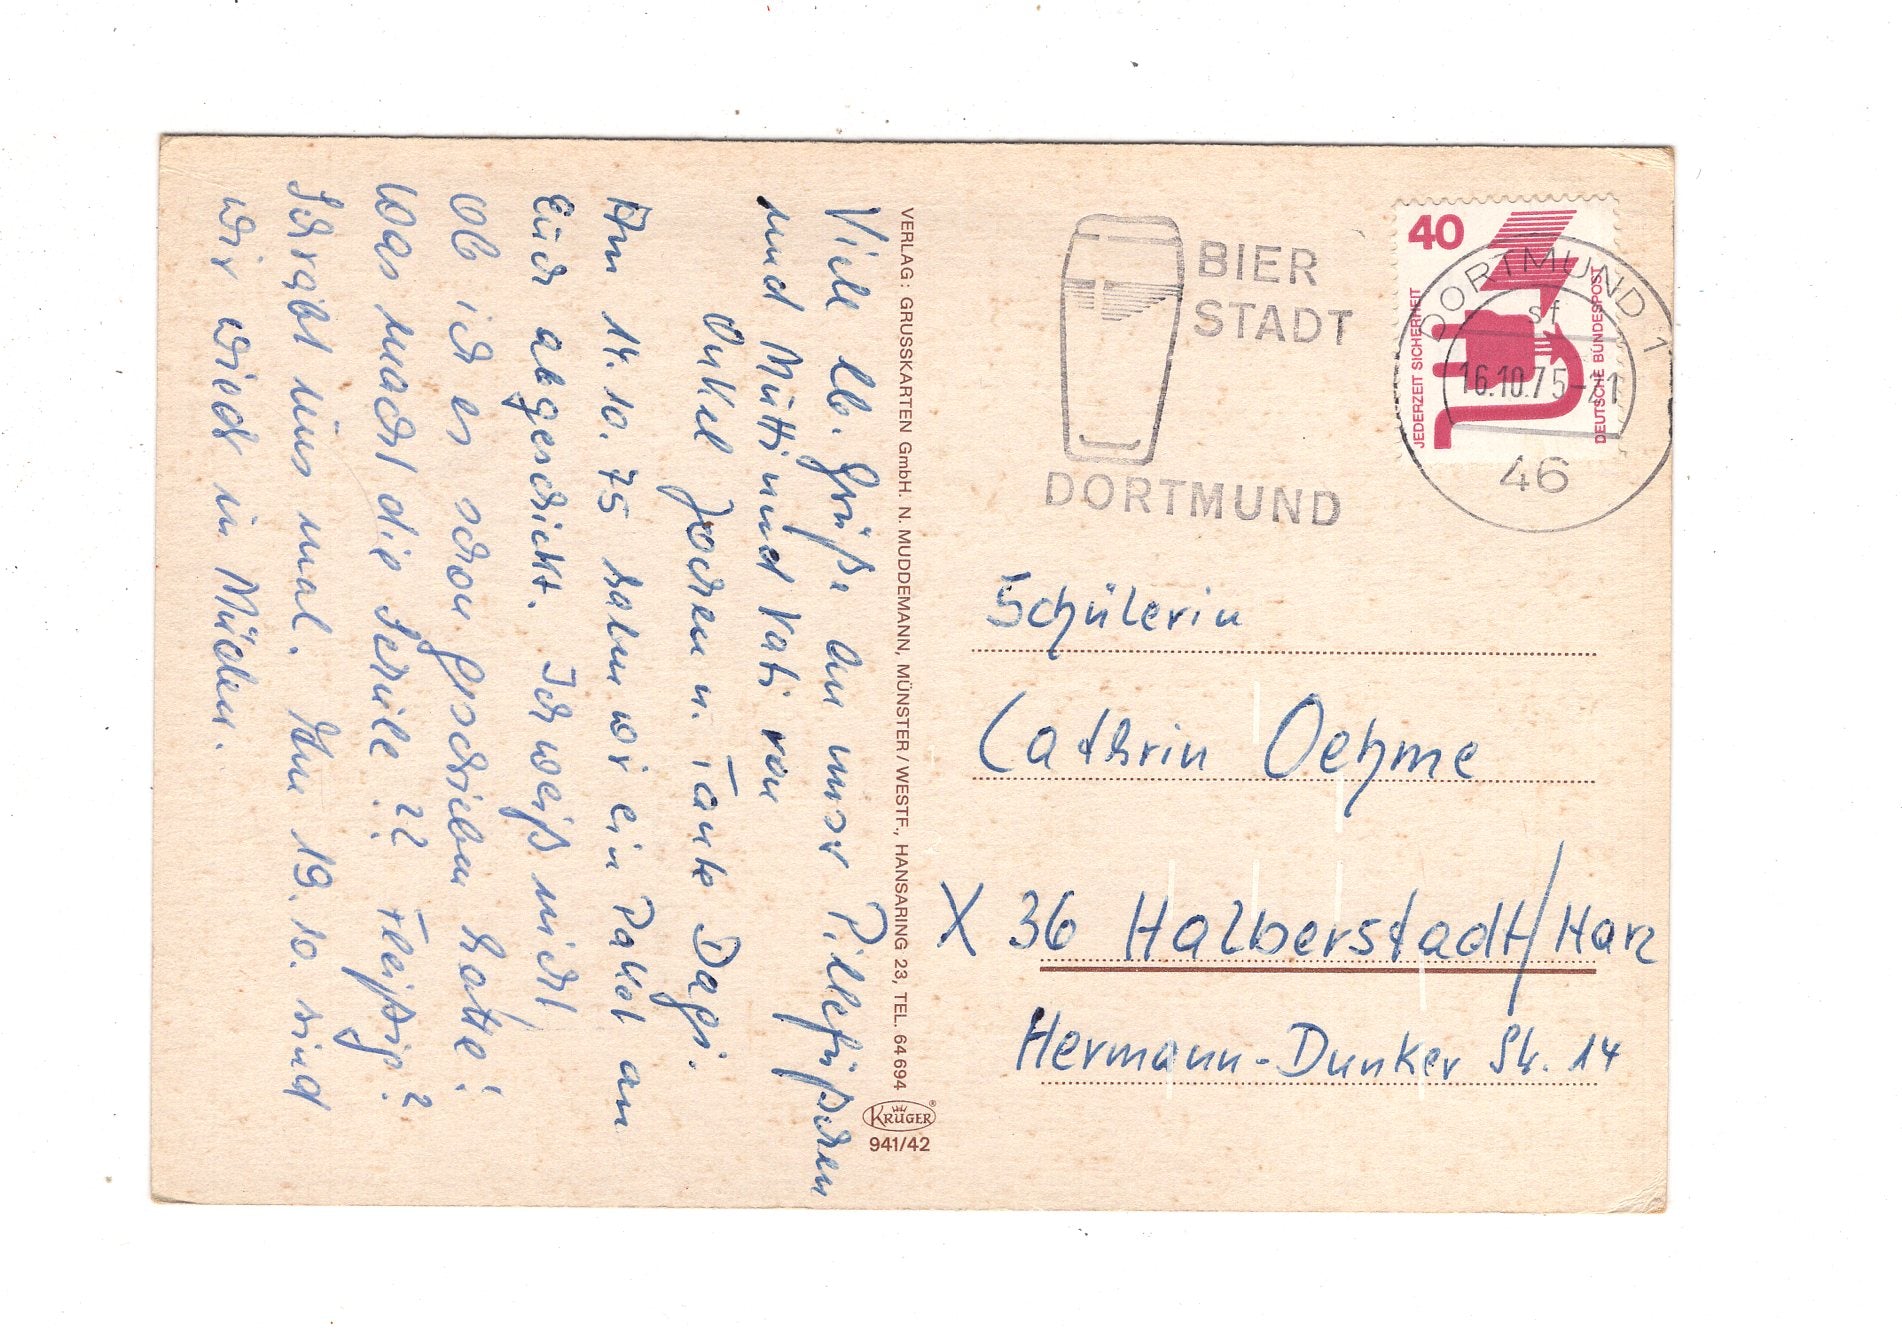 Viele lb. Grüße an unser Pillefüßchen
und Mutti und Vati von
Onkel Jochen u. Tante Dagi.
Am 14.10.75 haben wir ein Paket an
Euch abgeschickt. Ich weiß nicht
ob ich es schon geschrieben hatte!
Was macht die Schule?? Fleißig?
Schreibt uns mal. Am 19.10. sind
wir wied in
VERLAG: GRUSSKARTEN GmbH. N. MUDDEMANN, MÜNSTER/WESTF., HANSARING 23, TEL. 64694
KRÜGER®
941/42
BIER
STADT
DORTMUND
40
JEDERZEIT SICHERHEIT
DEUTSCHE BUNDESPOST
DORTMUND 1
sf
16.10.75-21
46
Schülerin
Cathrin Oehme
X 36 Halberstadt/Harz
Hermann-Dunker Str. 14